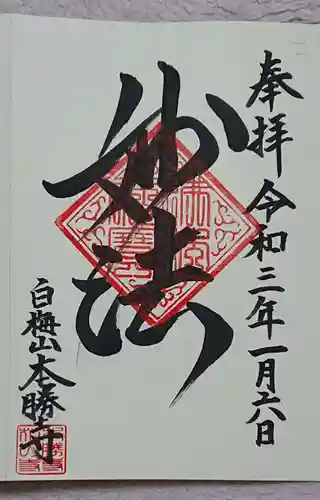 奉拝 令和三年一月六日
妙法
白梅山本勝寺